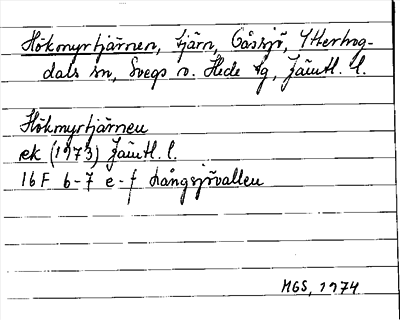 Hökmyrtjärnen, tjärn, Gåssjö, Ytterhog-
dals sn, Svegs o. Hede tg, Jämtl. l.
Hökmyrtjärnen
ek (1973) Jämtl. l.
16F 6-7 e-f Långsjövallen
MGS, 1974